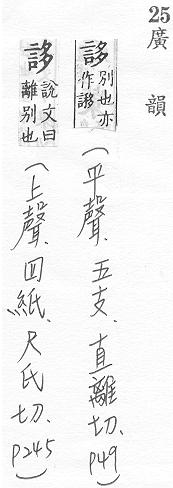 25
廣韻
誃別也亦作謻
(平聲、五支、直離切、P49)
誃說文曰離別也
(上聲、四紙、尺氏切、P245)